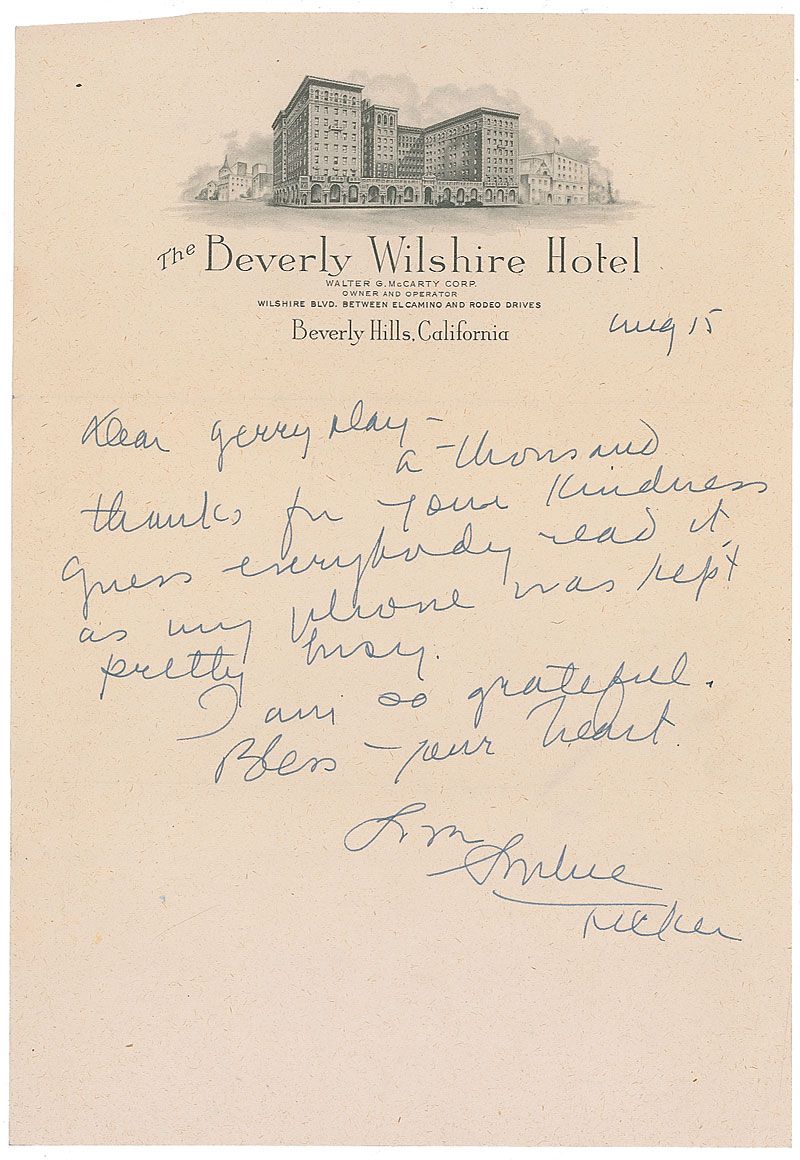 The Beverly Wilshire Hotel
WALTER G. McCARTY CORP.
OWNER AND OPERATOR
WILSHIRE BLVD. BETWEEN EL CAMINO AND RODEO DRIVES
Beverly Hills, California
Aug 15
Dear Gerry Day –
a thousand
thanks for your kindness
Guess everybody read it,
as my phone was kept
pretty busy.
I am so grateful.
Bless your heart.
Sophie
Tucker